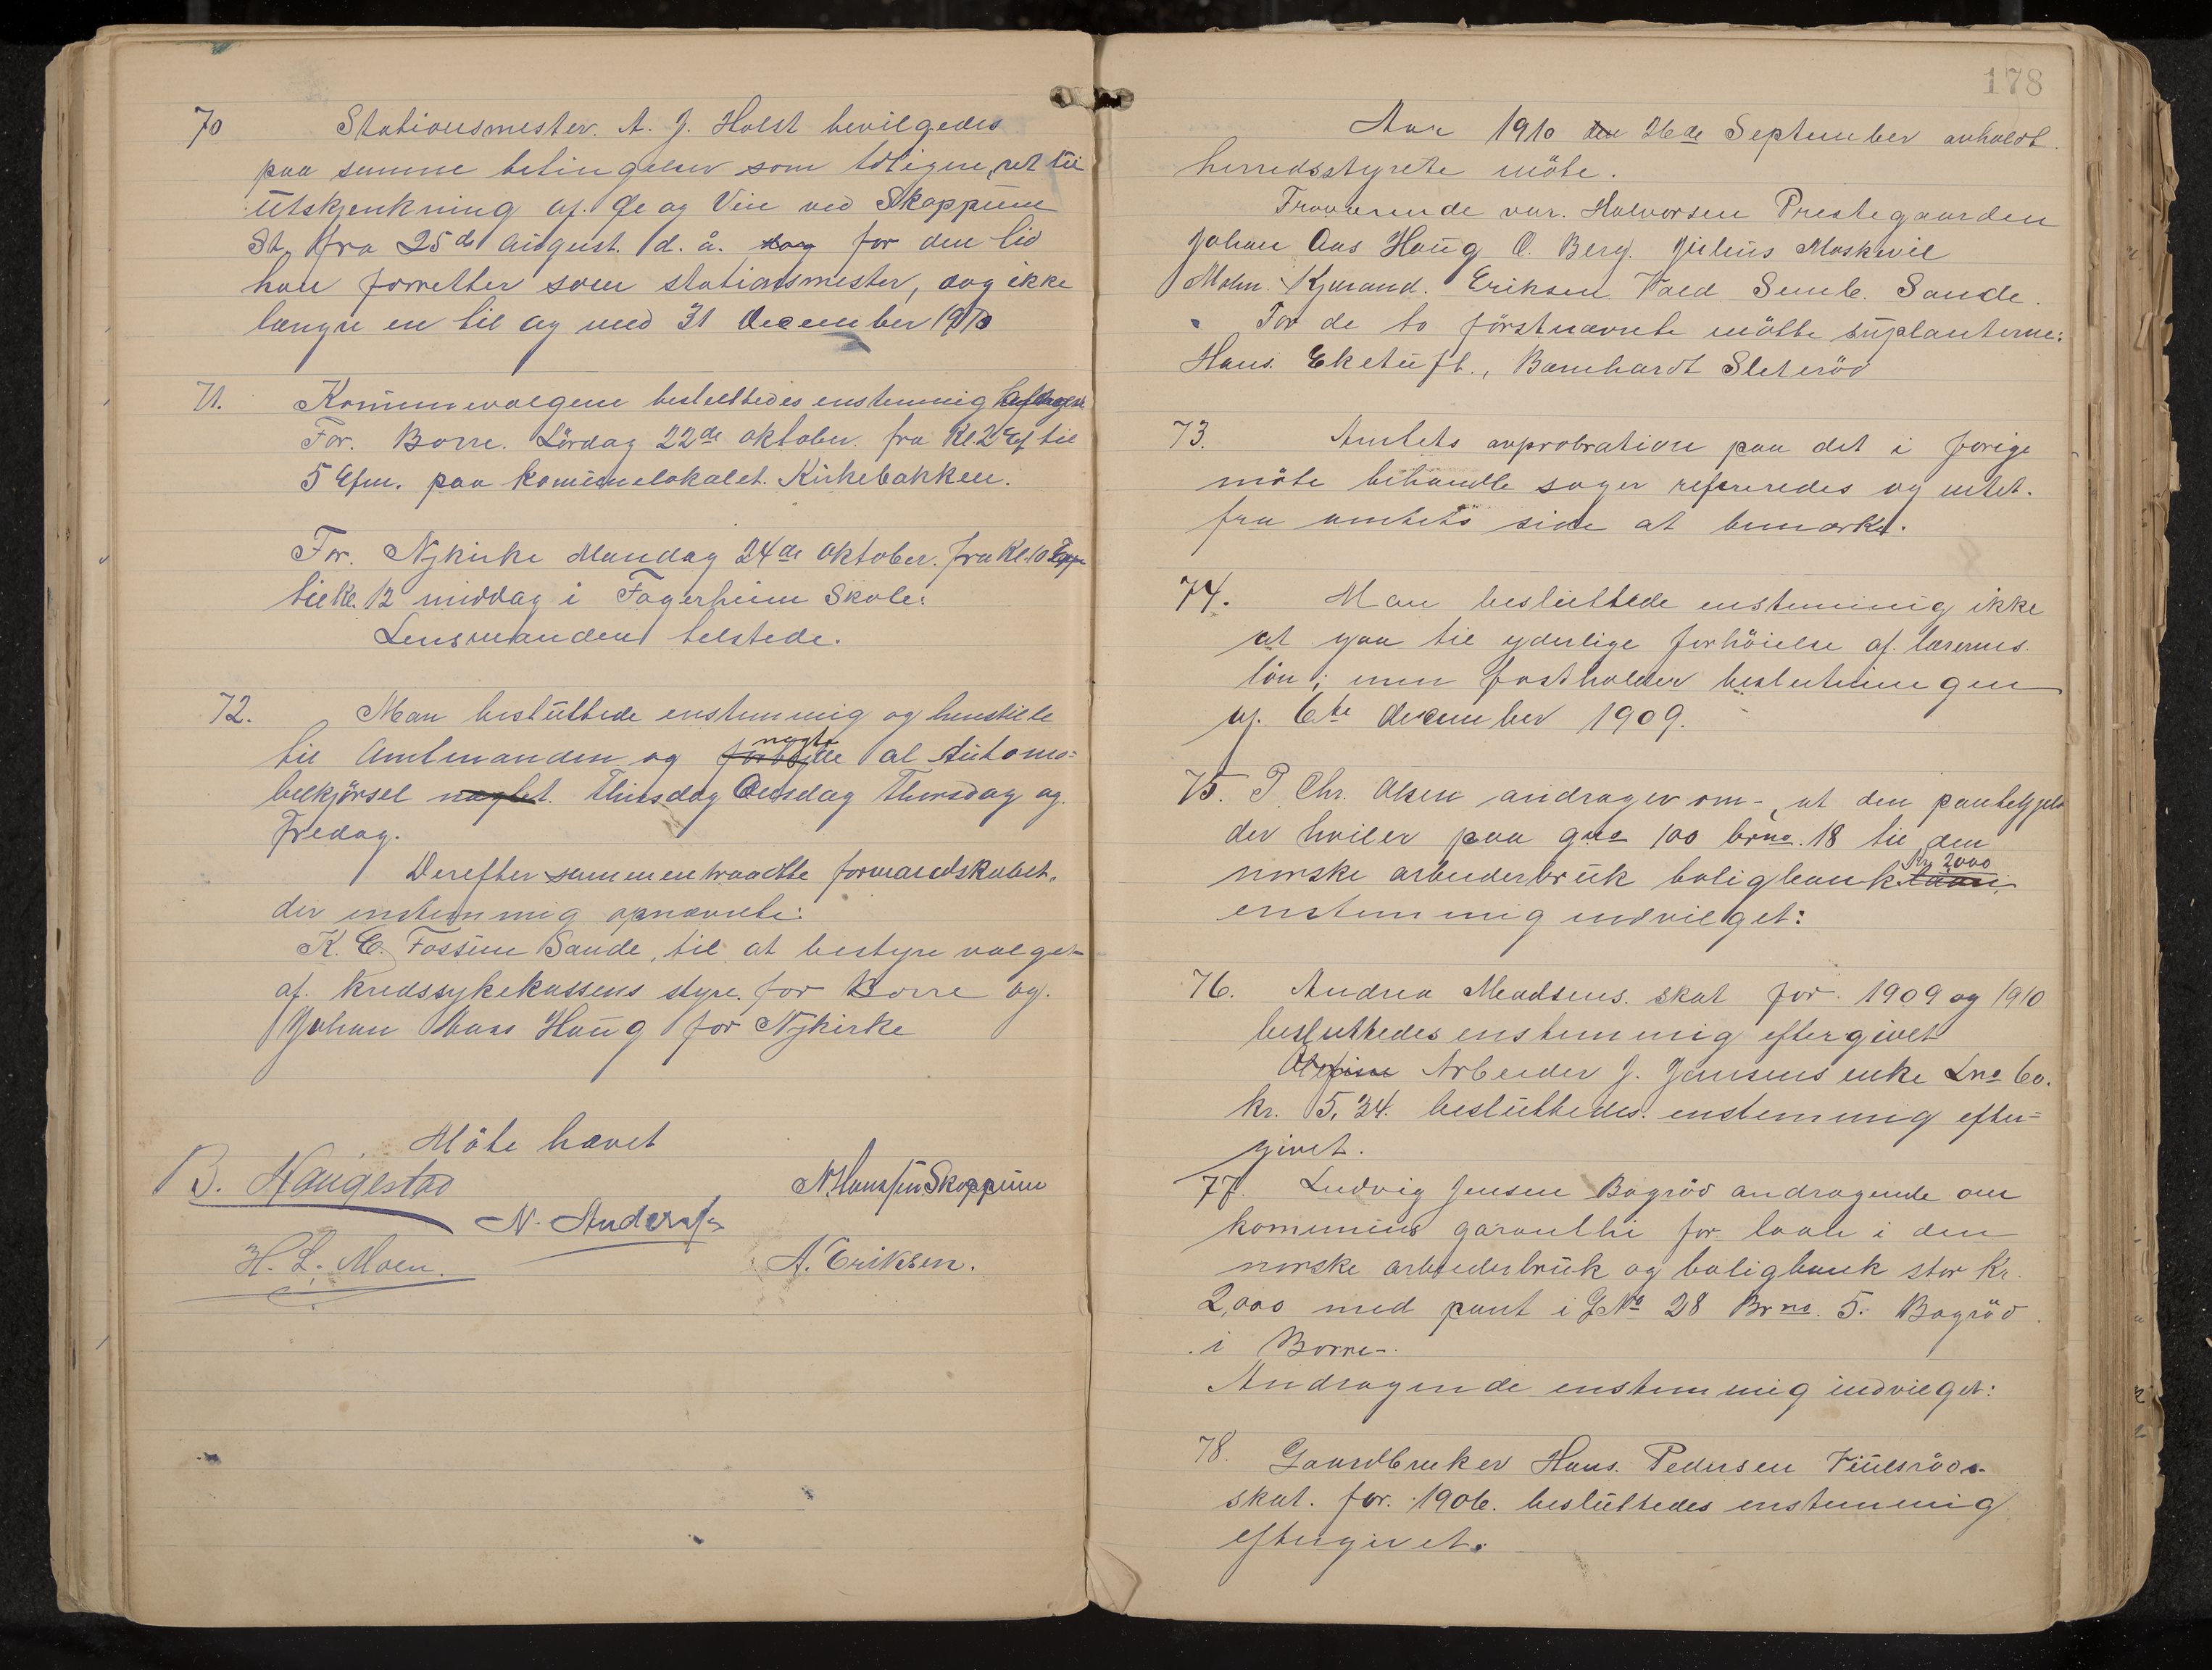 70 Stationsmester. A. J. Holst bevilgedes
paa samme betingelser som tidligere, ret til
Utskjenkning af. Øl og Vin ved Skoppum
St. fra 25de August. d. å. dog for den tid
han forretter som stationsmester, dog ikke
længre en til og med 31 December 1910
71. Kommunevalgene besluttedes enstemmig
For. Borre. Lördag 22de oktober. fra Kl. 2 Ef til
5 Efm. paa komunelokalet. Kirkebakken.
For. Nykirke Mandag 24de Oktober. fra Kl. 10
til Kl. 12 middag i Fagerheim Skole.
Lensmanden telstede.
72. Man besluttede enstemmig og henstille
til Amtmanden og forbyde nægte al Automo=
bilkjörsel nægtet. Thirsdag Onsdag Thorsdag og
Fredag.
Derefter sammentraadte formandskabet.
der enstemmig opnævnte:
K. E. Fossum Sande, til at bestyre valget
af. kredssykekassens styre. for Borre og.
Johan Aaas Haug for Nykirke
Möte hævet
B. Haugestad N. Hansen Skoppum
N. Anders
H. L. Moen. A. Eriksen.
178
Aar 1910 den 26de September avholdt
herredsstyrete möte.
Fraværende var. Halvorsen Prestegaarden
Johan Aas Haug O. Berg. Julius Moskvil
Molin. Kjærand. Eriksen. Vold Semb. Sande.
For de to förstnævnte mötte suplanterne:
Hans. Eketuft., Bernhardt Sleteröd
73. Amtets approbration paa det i forige
möte behandle sager refereredes og intet.
fra amtets side at bemærke.
74. Man besluttede enstemmig ikke
at gaa til yderlige forhöielse af. lærernes.
lön; men fastholder beslutningen
af. 6te december 1909.
75. P. Chr. Olsen andrager om-, at den pantegjeld
der hviler paa gno 100 brno. 18 til den
norske arbeiderbruk boligbank Kr. 2000
enstemmig indvilget:
76. Andrea Madsens. skat for. 1909 og 1910
besluttedes enstemmig eftergivet
Arbeider J. Jansens enke Lno 60.
kr. 5,34. besluttedes. enstemmig efter=
givet.
77. Ludvig Jensen Bogröd andragende om
kommunes garanthi for laan i den
norske arbeiderbruk og boligbank stor Kr.
2,000 med pant i GNo 28 Brno. 5. Bogröd
i Borre-.
Andragende enstemmig indvilget:
78. Gaardbruker Hans. Pedersen
skat. for. 1906. besluttedes enstemmig
eftergivet.